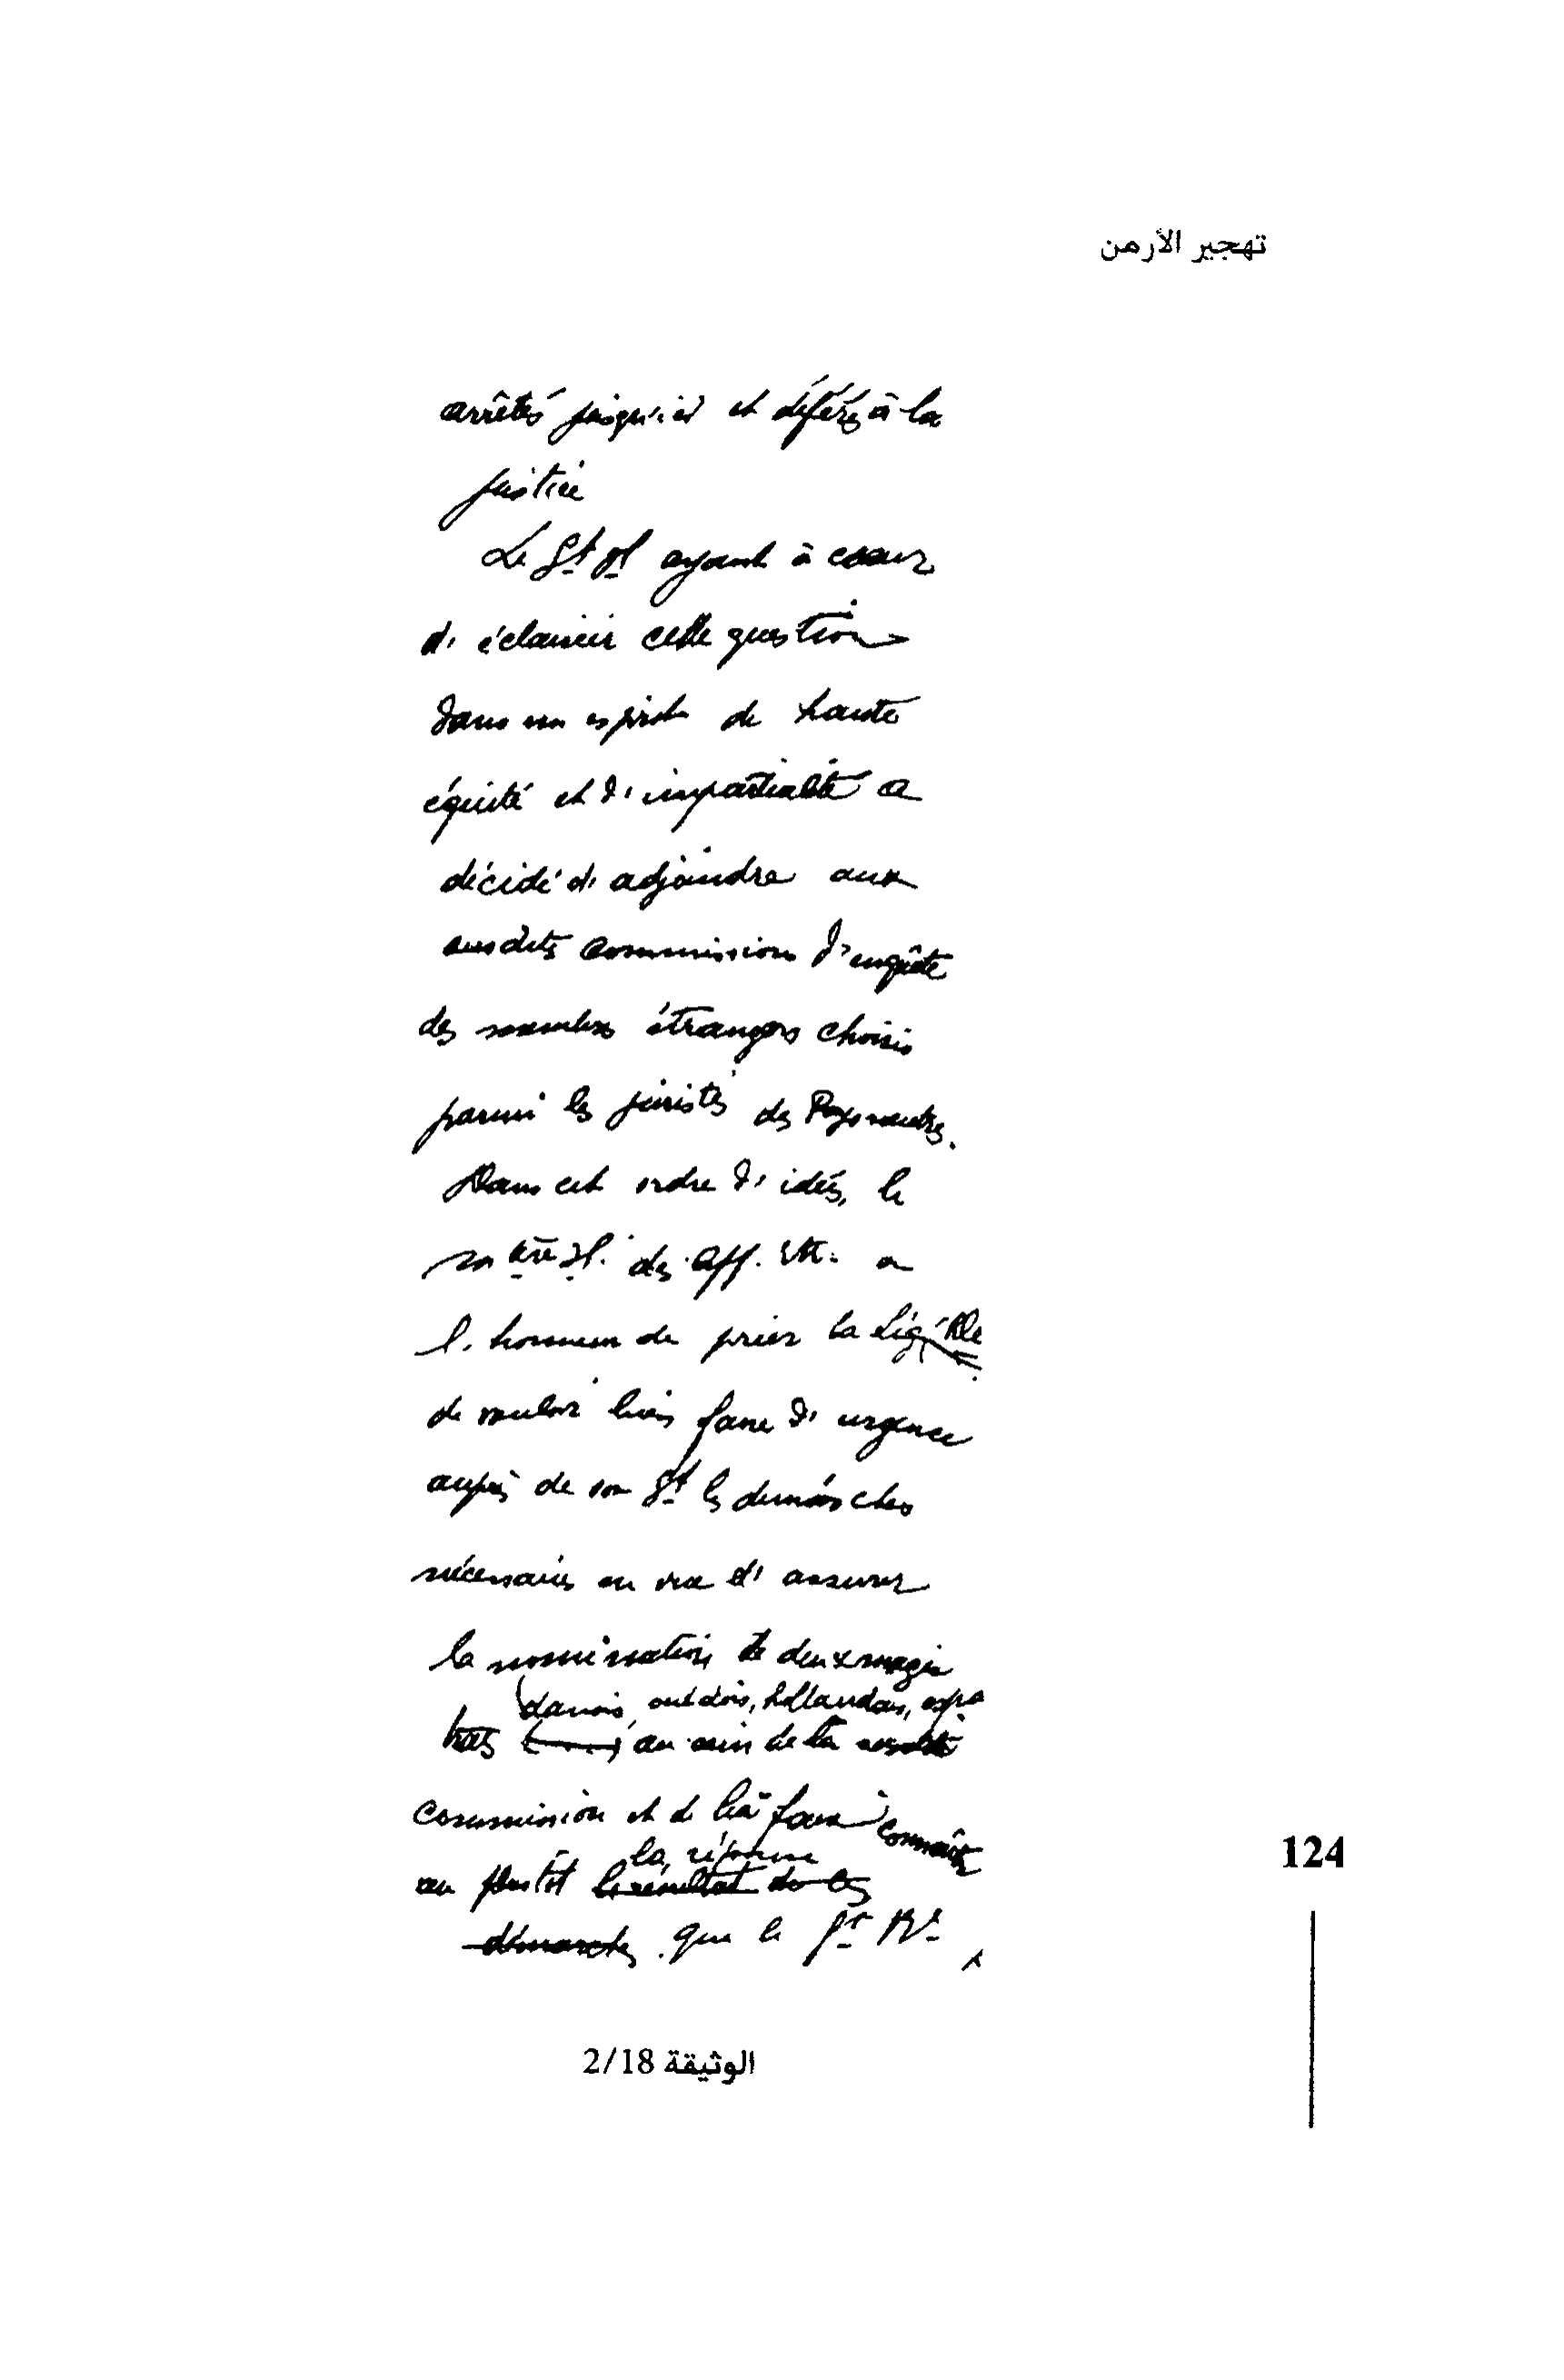 تهجير الأرمن
arrêtés jusqu'ici et déférés à la
justice
Le Gt Il ayant à cœur
d'éclaircir cette question
dans un esprit de haute
équité et d'impartialité a
décidé d'adjoindre aux
susdites commissions d'enquête
des membres étrangers choisis
parmi les juristes des Pays neutres.
Dans cet ordre d'idées, le
des aff. Etr. a
l'honneur de prier la Lég. Rle
de vouloir bien faire d'urgence
auprès de son Gt les démarches
nécessaires en vue d'assurer
la nomination de deux magis
danois, suédois, hollandais, espa
trats au sein de la susdite
commission et de lui faire connaître
la réponse
au plus tôt le résultat de ces
démarches que le Gt Rl
الوثيقة 2/18
124